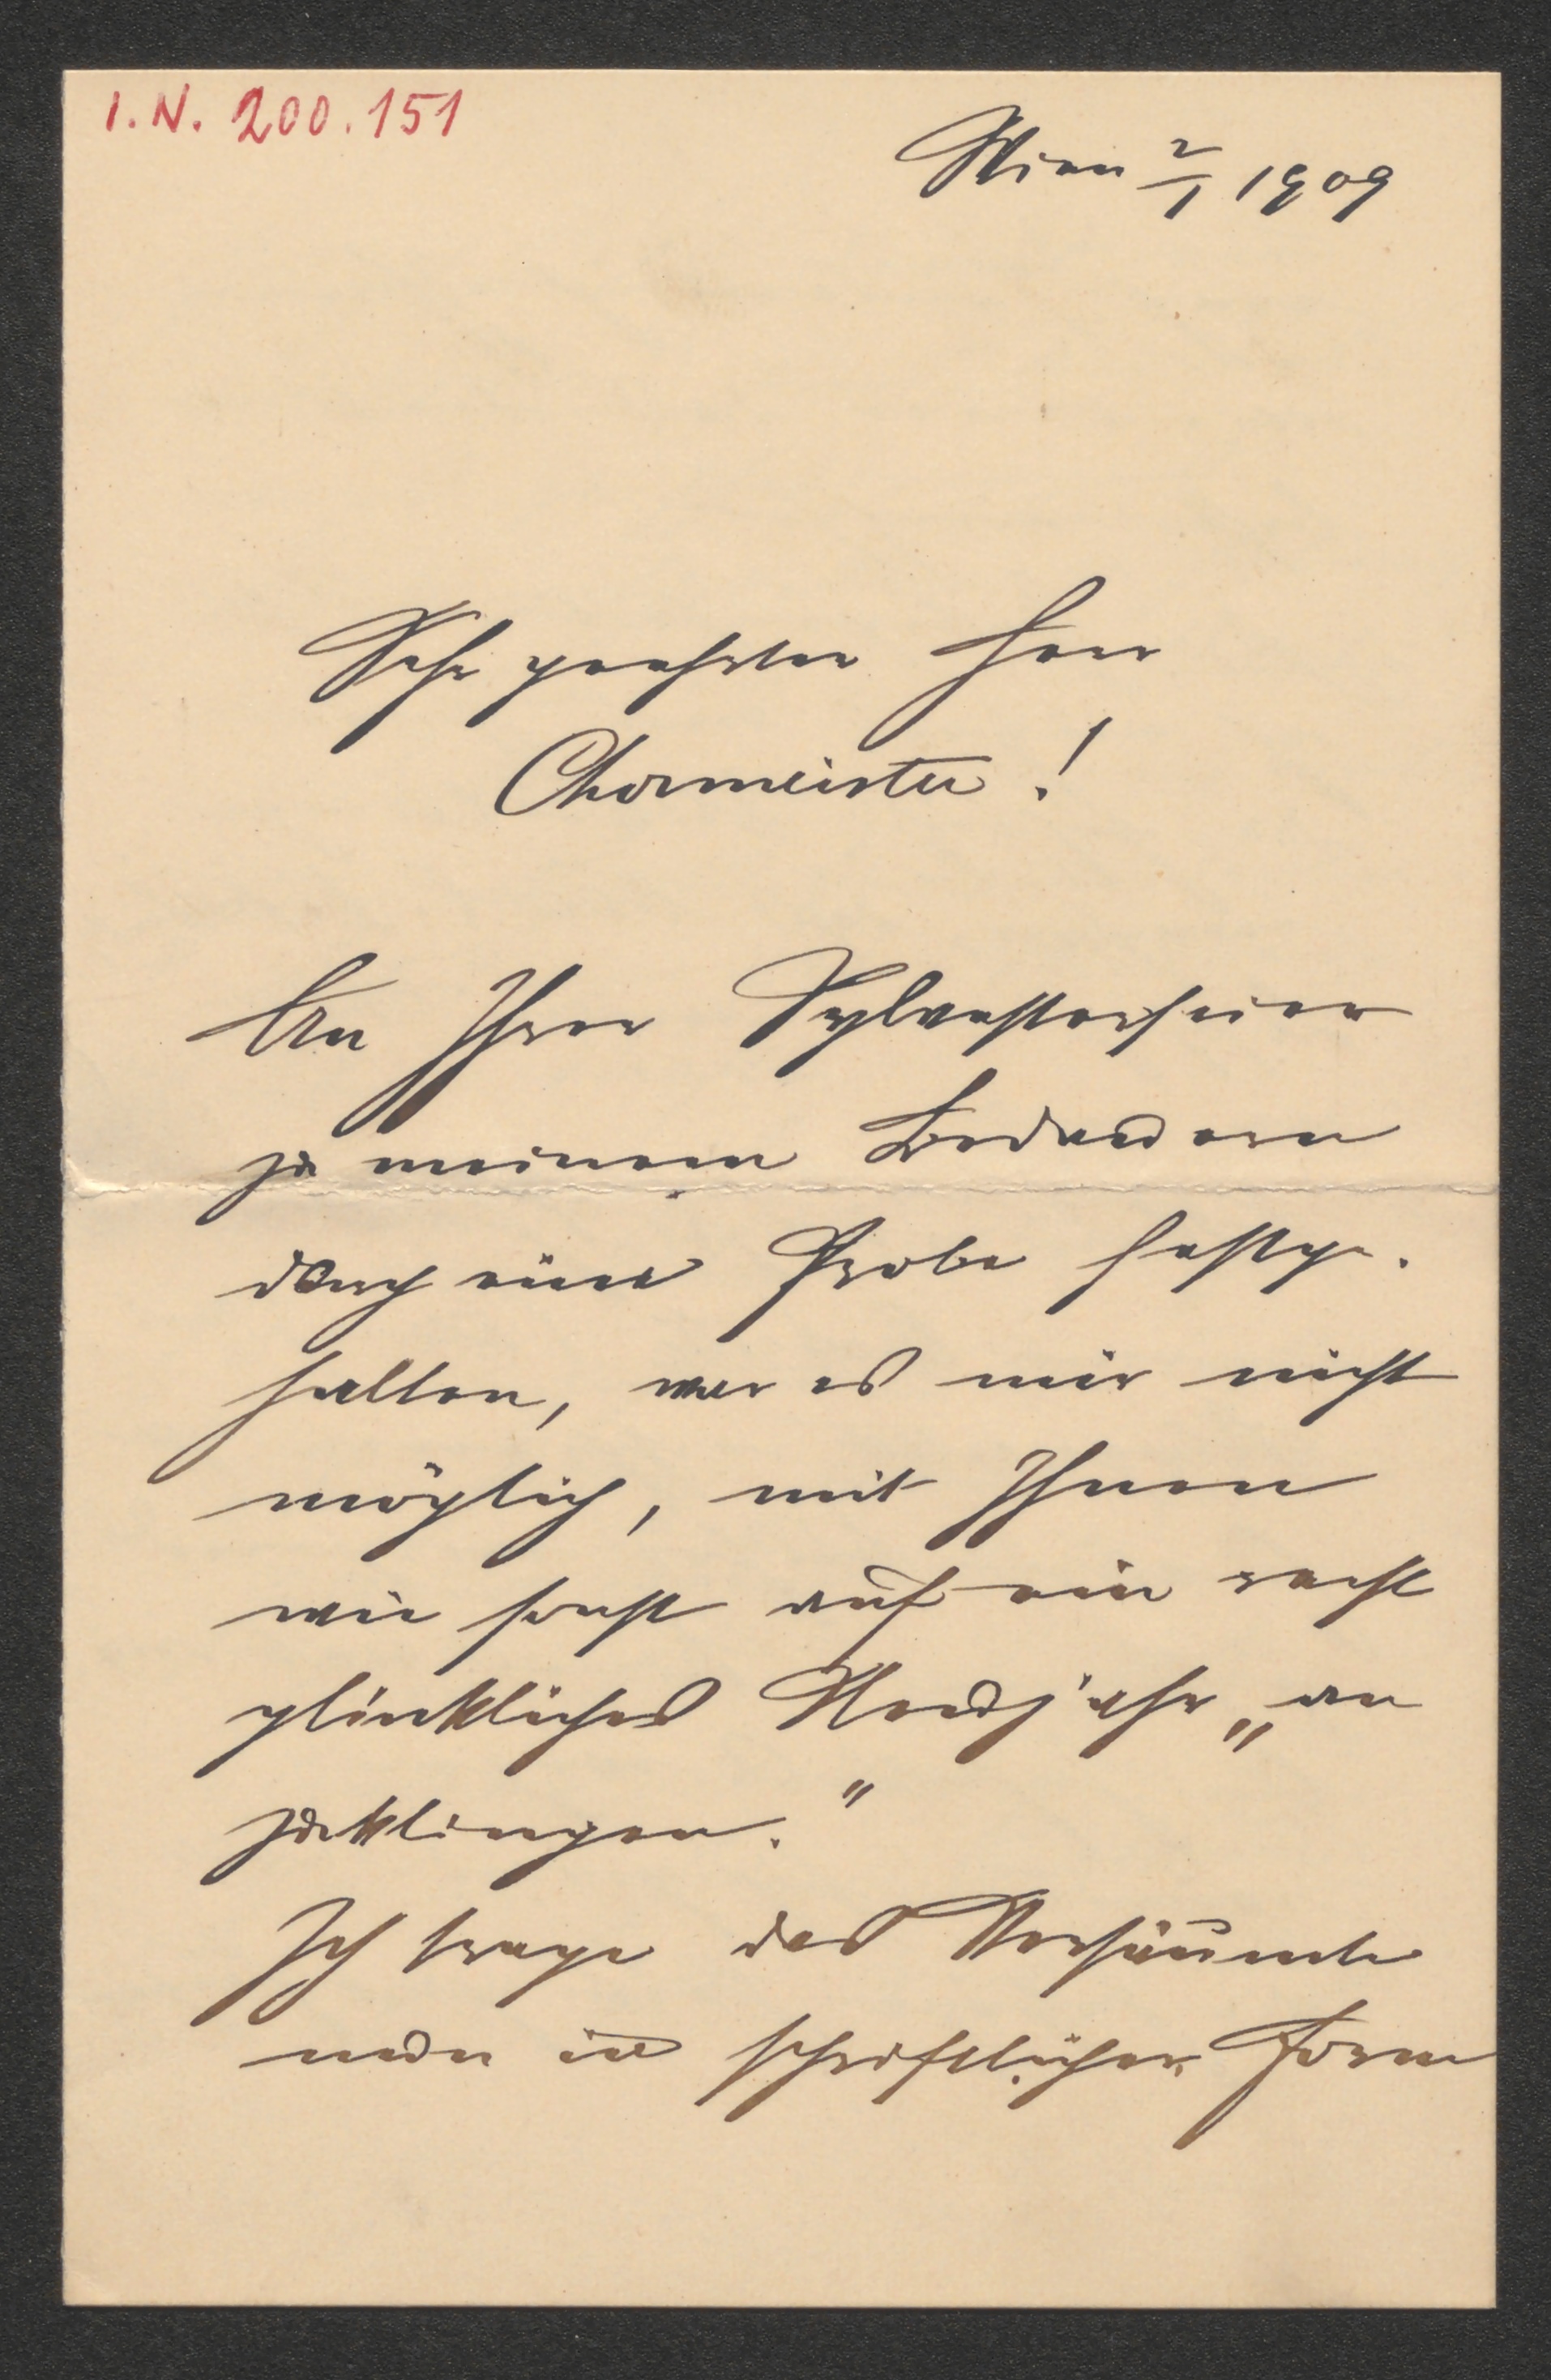 I.N. 200.151
Wien 2/1 1909
Sehr geehrter Herr
Chormeister!
An Ihrer Sylvesterfeier
zu meinem Bedauern
durch eine Probe festge-
halten, war es mir nicht
möglich, mit Ihnen
wie sonst auf ein recht
glückliches Neujahr „an
zuklingen."
Ich trage das Versäumte
nun in schriftlicher Form